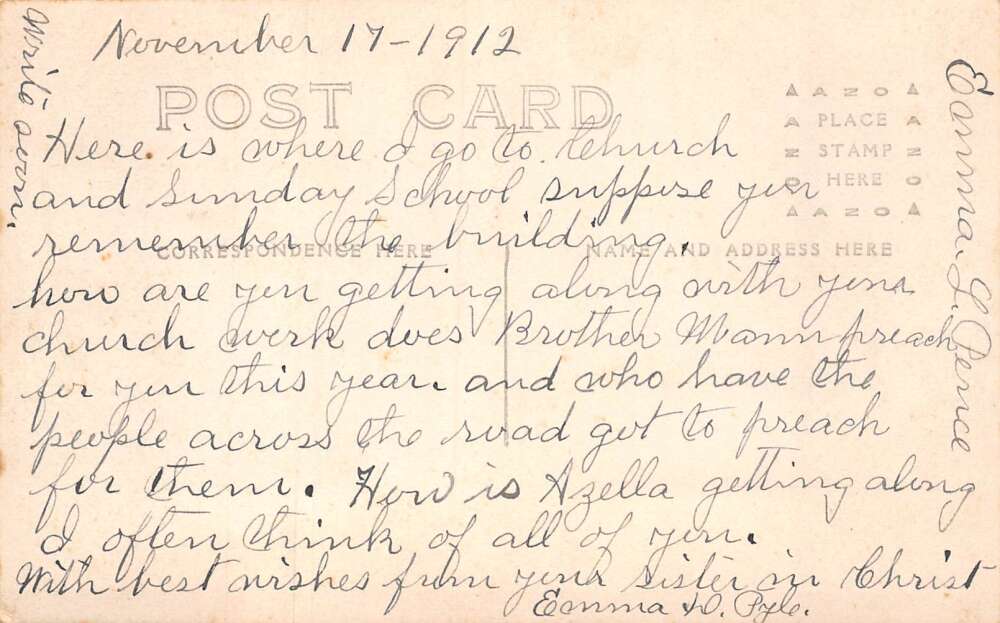 November 17-1912
Write soon.
POST CARD
AZO
PLACE
STAMP
HERE
AZO
CORRESPONDENCE HERE
NAME AND ADDRESS HERE
Here is where I go to Church
and Sunday School suppose you
remember the building.
how are you getting along with your
church work does Brother Mann preach
for you this year. and who have the
people across the road got to preach
for them. How is Azella getting along
I often think of all of you.
With best wishes from your sister in Christ
Emma D. Pyle.
Emma. L. Pence